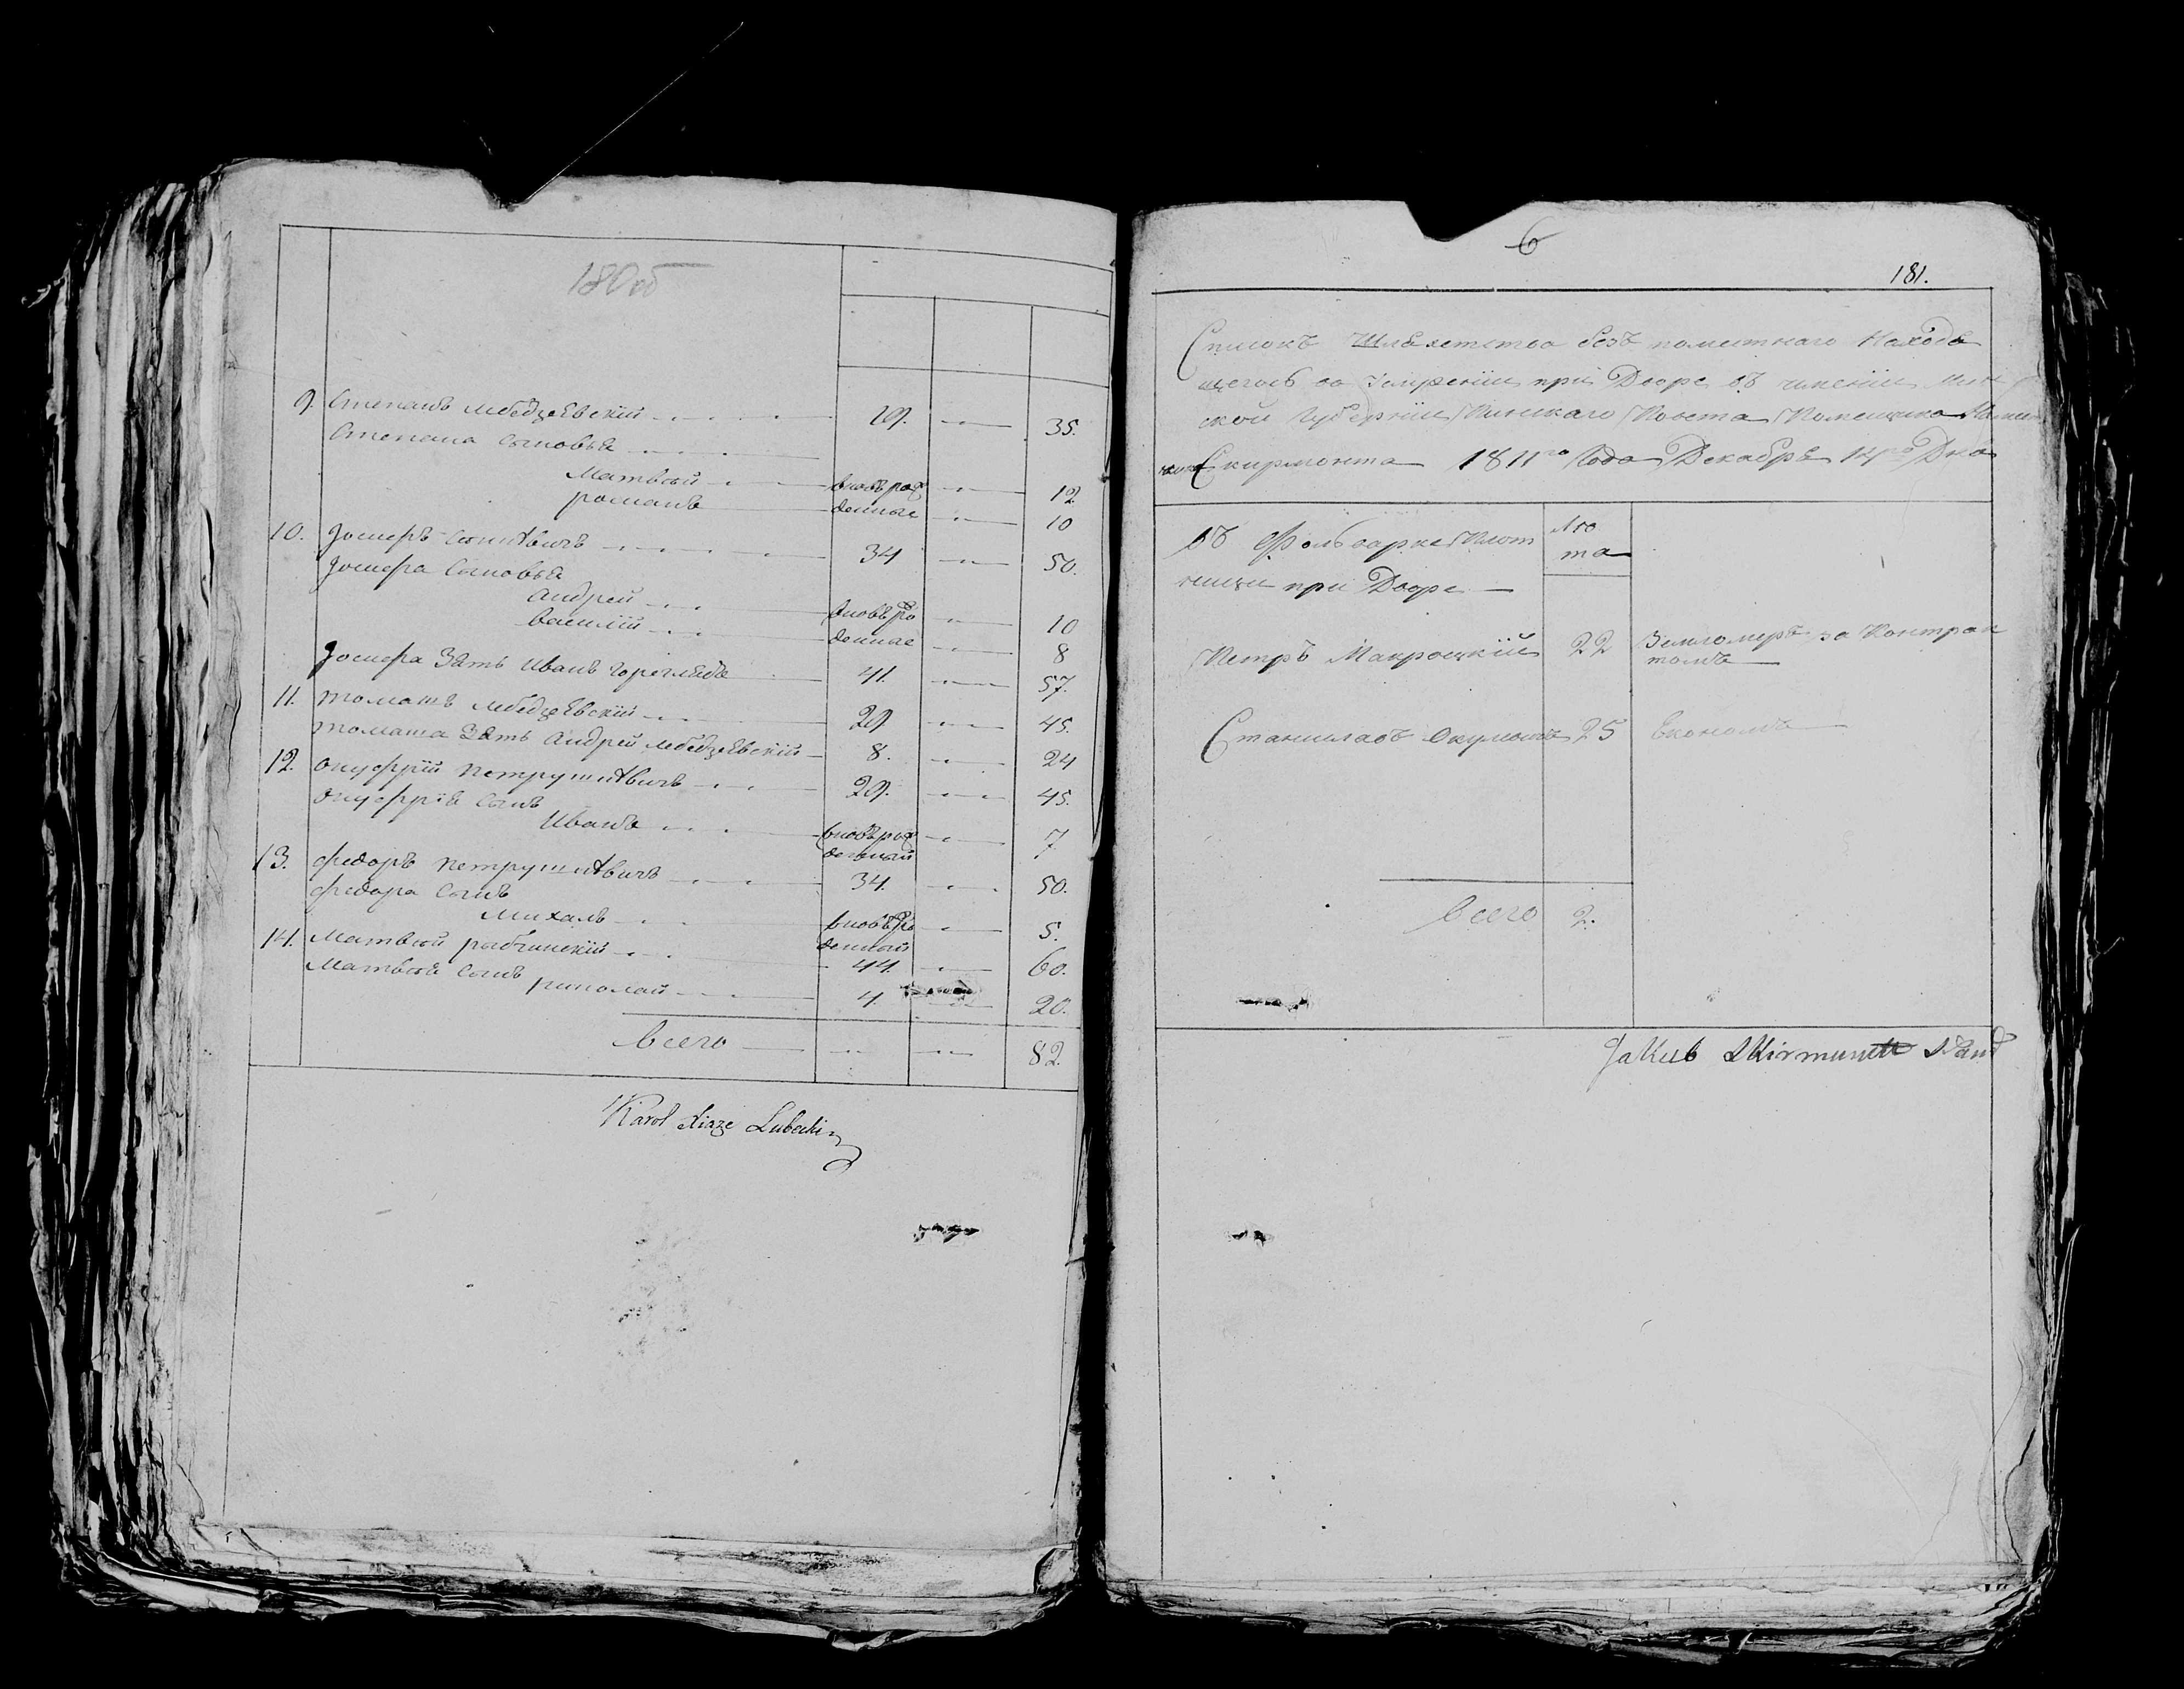 180 об
9. Степанъ Лебедзевскій 19. 35.
Степана сыновья
Матвей вновь рож 12
романъ денные 10
10. Іосифъ 34 50.
Іосифа сыновья
Андрей вновь ро 10
василій денные 8
Іосифа зять Иванъ Горегляда 41. 57.
11. томашъ Лебедзевскій 29 45.
томаша зять Андрей Лебедзевскій 8. 24
12. онуфрій Петрушкевичъ 29. 45.
онуфрія сынъ
Иванъ вновь рож 7
денный
13. федоръ Петрушкевичъ 34. 50.
федора сынъ
Михалъ вновь ро 5.
денный
14. Матвей рыбчинскій 44. 60.
Матвея сынъ
4. 20.
всего 82.
Karol Xiąże Lubecki
6
181.
Списокъ Шляхетства безъ поместнаго Находя
щегось во при Дворе въ имении Мин
ской Губернии Пинскаго Повета Помещика
Скирмонта 1811го Года Декабря 14го Дня
въ Фольварке Плот Ле
ницы при Дворе та
Петръ Макроцкій 22 Землемеръ за Контрак
томъ
Станиславъ 25 Економъ
всего 2.
Jakub Skirmuntt